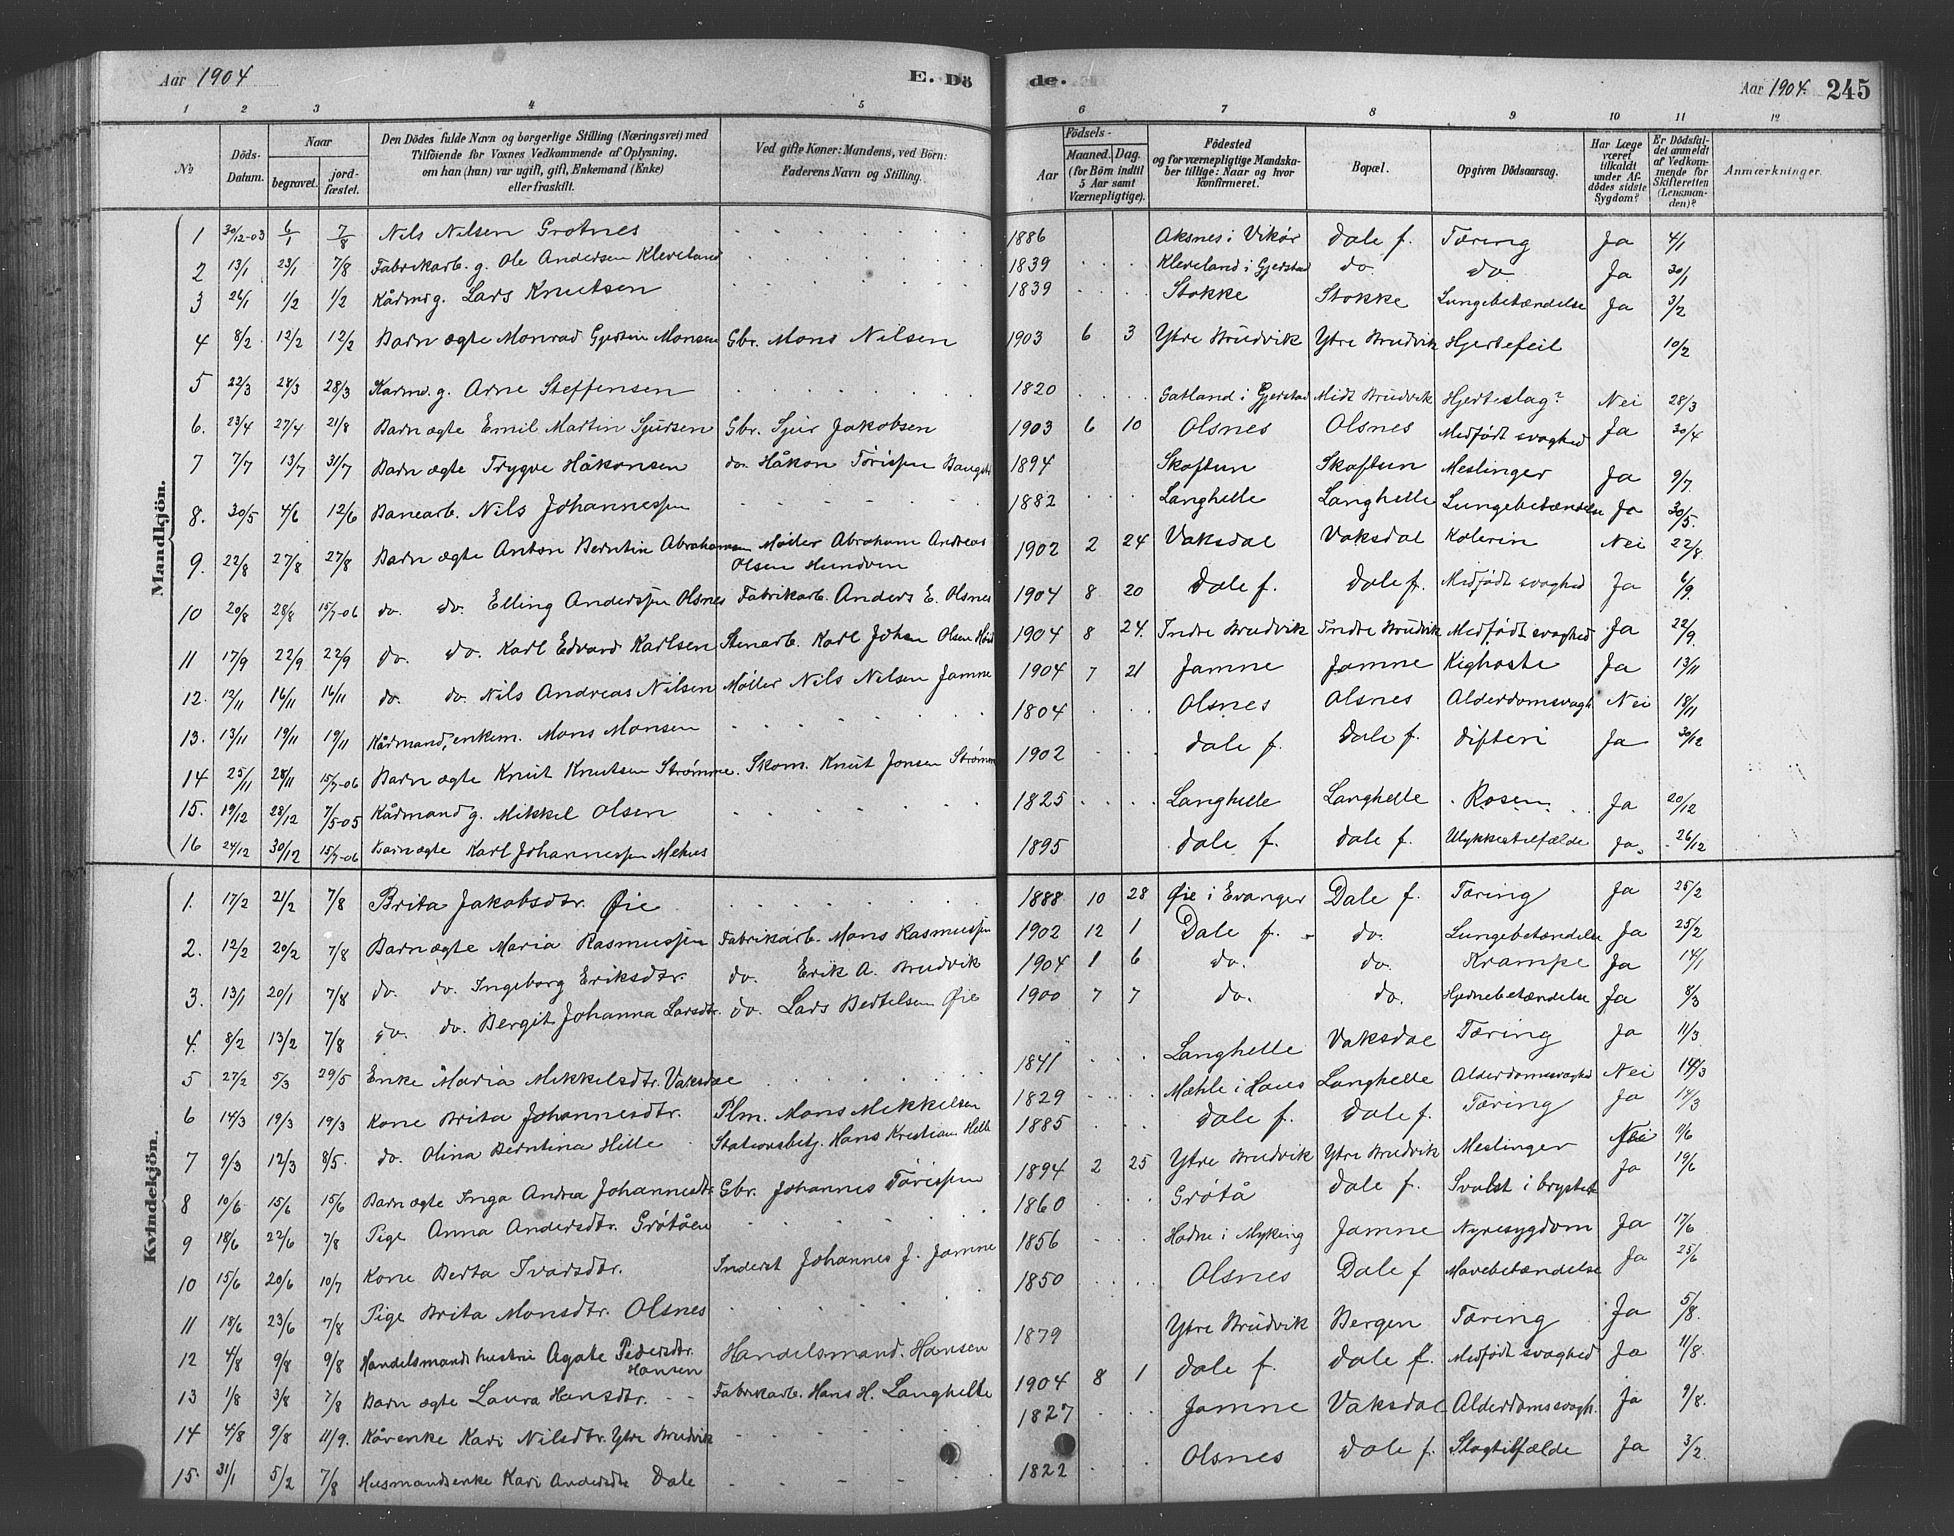 Aar 1904 E. Dö de. Aar 1904. 245
1 2 3 4 5 6 7 8 9 10 11 12
No Döds-Datum. Naar begravet. jordfæstet. Den Dödes fulde Navn og borgerlige Stilling (Næringsvei) med Tilföiende for Voxnes Vedkommende af Oplysning, om han (hun) var ugift, gift, Enkemand (Enke) eller fraskilt. Ved gifte Koner: Mandens, ved Börn: Faderens Navn og Stilling. Födsels- Aar Maaned. Dag. (for Börn indtil 5 Aar samt Værnepligtige). Födested og for værnepligtige Mandskaber tillige: Naar og hvor konfirmeret. Bopæl. Opgiven Dödsaarsag. Har Læge været tilkaldt under Afdödes sidste Sygdom? Er Dödsfaldet anmeldt af Vedkommende for Skifteretten (Lensmanden)? Anmærkninger.
Mandkjön.
1 30/12-03 6/1 7/8 Nils Nilsen Grotnes 1886 Aksnes i Vikør Dale f. Tæring Ja 4/1
2 13/1 23/1 7/8 Fabrikarb. g. Ole Andersen Kleveland 1839 Kleveland i Gjerstad do do Ja 30/1
3 26/1 1/2 1/2 Kårmd g. Lars Knutsen 1839 Stokke Stokke Lungebetændelse Ja 3/2
4 8/2 12/2 12/2 Barn ægte Monrad Gjertin Monsen Gbr. Mons Nilsen 1903 6 3 Ytre Brudvik Ytre Brudvik Hjertefeil 10/2
5 22/3 28/3 28/3 Karmd. g. Arne Steffensen 1820 Gatland i Gjerstad Midt Brudvik Hjerteslag? Nei 28/3
6. 23/4 27/4 21/8 Barn ægte Emil Martin Sjursen Gbr. Sjur Jakobsen 1903 6 10 Olsnes Olsnes Medfødt svaghed Ja 30/4
7 7/7 13/7 31/7 Barn ægte Trygve Håkonsen do. Håkon Torissen 1894 Skaftun Skaftun Meslinger Ja 9/7
8. 30/5 4/6 12/6 Banearb. Nils Johannessen 1882 Langhelle Langhelle Lungebetændelse Ja 30/5.
9. 22/8 27/8 27/8 Barn ægte Anton Berntin Abrahamsen Møller Abraham Andreas Olsen Hundven 1902 2 24 Vaksdal Vaksdal Kolerin Nei 22/8
10 20/8 28/8 15/7-06 do. do. Elling Anderssen Olsnes Fabrikarb. Anders E. Olsnes 1904 8 20 Dale f. Dale f. Medfødt svaghed Ja 6/9.
11 17/9 22/9 22/9 do. do. Karl Edvard Karlsen Stenarb. Karl Johan Olsen 1904 8 24. Indre Brudvik Indre Brudvik Medfødt svaghed Ja 22/9.
12. 12/11 16/11 16/11 do. do. Nils Andreas Nilsen Møller Nils Nilsen Jamne 1904 7 21 Jamne Jamne Kighoste Ja 13/11
13. 13/11 19/11 19/11 Kårmand, enkem. Mons Monsen 1804 Olsnes Olsnes Alderdomsvagh Nei 18/11
14 25/11 28/11 15/7-06 Barn ægte Knut Knutsen Strømme. Skom. Knut Jonsen Strømme 1902 Dale f. Dale f. Difteri Ja 30/12
15. 19/12 28/12 7/5-05 Kårmand g. Mikkel Olsen 1825 Langhelle Langhelle Rosen Ja 20/12
16 24/12 30/12 15/7-06 Barn ægte Karl Johannessen Mehus 1895 Dale f. Dale f. Ulykkestilfælde Ja. 26/12
Kvindekjön.
1. 17/2 21/2 7/8 Brita Jakobsdtr. Øie 1888 10 28 Øie i Evanger Dale f. Tæring Ja 25/2
2. 12/2 20/2 7/8 Barn ægte Maria Rasmussen Fabrikarb. Mons Rasmussen 1902 12 1 Dale f. do. Lungebetændelse Ja 25/2
3. 13/1 20/1 7/8 do. do. Ingeborg Eriksdtr. do. Erik A. Brudvik 1904 1 6 do. do. Krampe Ja 14/1
4. 8/2 13/2 7/8 do. do. Bergit Johanna Larsdtr. do. Lars Bertelsen Øie 1900 7 7 do. do. Hjernebetændelse Ja 8/3
5 27/2 5/3 29/5 Enke Maria Mikkelsdtr. Vaksdal 1841 Langhelle Vaksdal Tæring Ja 11/3
6 14/3 19/3 19/3 Kone Brita Johannesdtr. Plm. Mons Mikkelsen 1829 Mæhle i Haus Langhelle Alderdomssvaghed Nei 14/3
7 9/3 12/3 8/5. do. Olina Berntina Helle Stationsbetj. Hans Kristian Helle 1885 Dale f. Dale f. Tæring Ja 14/3
8 10/6 15/6 15/6 Barn ægte Inga Andrea Johannesdtr. Gbr. Johannes Torissen 1894 2 25 Ytre Brudvik Ytre Brudvik Meslinger Nei 11/6
9 18/6 22/6 7/8 Pige Anna Andersdtr. Grøtåen 1860 Grøtå Dale f. Svulst i brystet Ja 19/6
10 15/6 20/6 10/7 Kone Berta Ivarsdtr. Inderst Johannes J. Jamne 1856 Hadne i Myking Jamne Nyresygdom Ja 17/6
11 18/6 23/6 7/8 Pige Brita Monsdtr. Olsnes 1850 Olsnes Dale f Mavebetændelse Ja 25/6
12 4/8 9/8 9/8 Handelsmands hustru Agate Pedersdtr. Hansen Handelsmand. Hansen 1879 Ytre Brudvik Bergen Tæring Ja 5/8.
13 1/8 3/8 7/8 Barn ægte Laura Hansdtr. Fabrikarb. Hans H. Langhelle 1904 8 1 Dale f. Dale f. Medfødt svaghed Ja 11/8.
14 4/8 9/8 11/9. Kårenke Kari Nilsdtr. Ytre Brudvik 1827 Jamne Vaksdal Alderdomssvagh. Ja 9/8.
15. 31/1 5/2 7/8 Husmandsenke Kari Andersdtr Dale 1822 Olsnes Dale f. Slagtilfælde Ja 3/2.